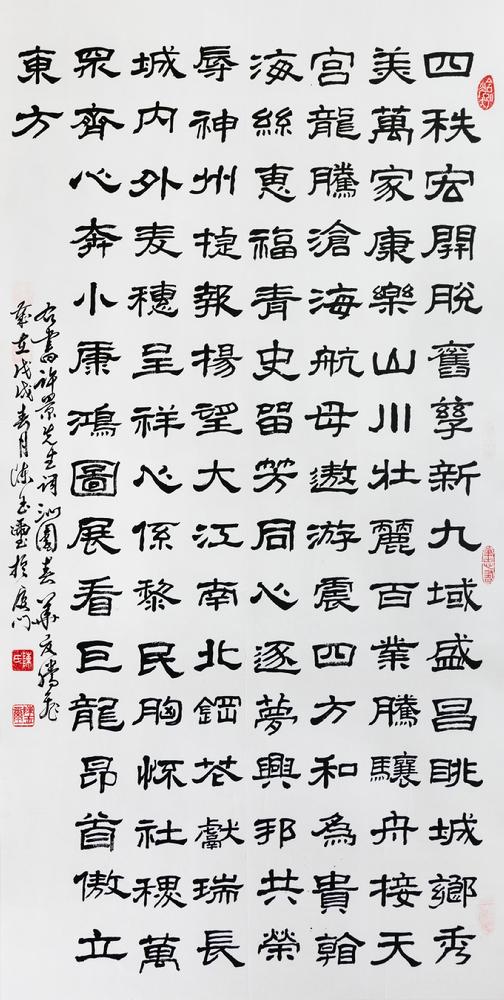 四秩宏開脫舊孳新九域盛昌眺城鄉秀
美萬家康樂山川壯麗百業騰驤舟接天
宮龍騰滄海航母遨游震四方和為貴翰
海絲惠福青史留芳同心逐夢興邦共榮
辱神州捷報揚望大江南北鋼花獻瑞長
城內外麦穗呈祥心係黎民胸怀社稷萬
眾齊心奔小康鴻圖展看巨龍昂首傲立
東方
右書許景先生詞沁園春華夏騰飛
歲在戊戌春月陳玉靈於厦门